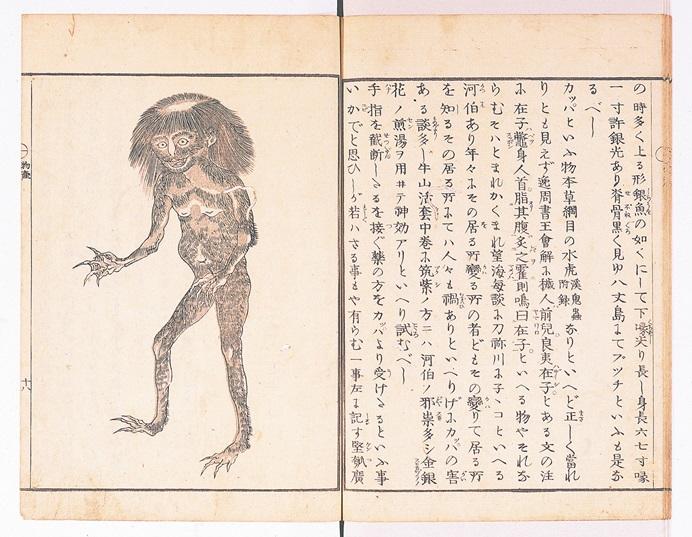 の時多く上る形銀魚の如くにして下喙尖り長し身長六七寸喙
一寸許銀光あり脊骨黒く見ゆ八丈島にてブッチといふも是な
るべし
カッパといふ物本草綱目の水虎 溪鬼蟲附録 なりといへど正しく當れ
りとも見えず逸周書王會解に穢人前兒良夷在子とある文の注
に在子鼈身人首脂其腹炙之霍則鳴曰在子といへる物やそれな
らむそハとまれかくまれ望海毎談に刀祢川に子ヽコといへる
河伯あり年々にその居る所變る所の者どもその變りて居る所
を知るその居る所にてハ人々も禍ありといへりげにカッパの害
ある談多し牛山活套中巻に筑紫ノ方ニハ河伯ノ邪祟多シ金銀
花ノ煎湯ヲ用ヰテ神効アリといへり試むべし
手指を截断したるを接ぐ藥の方をカッパより受けたるといふ事
いかでと思ひしが若ハさる事もや有らむ一事左に記す堅瓠廣
物産
十八